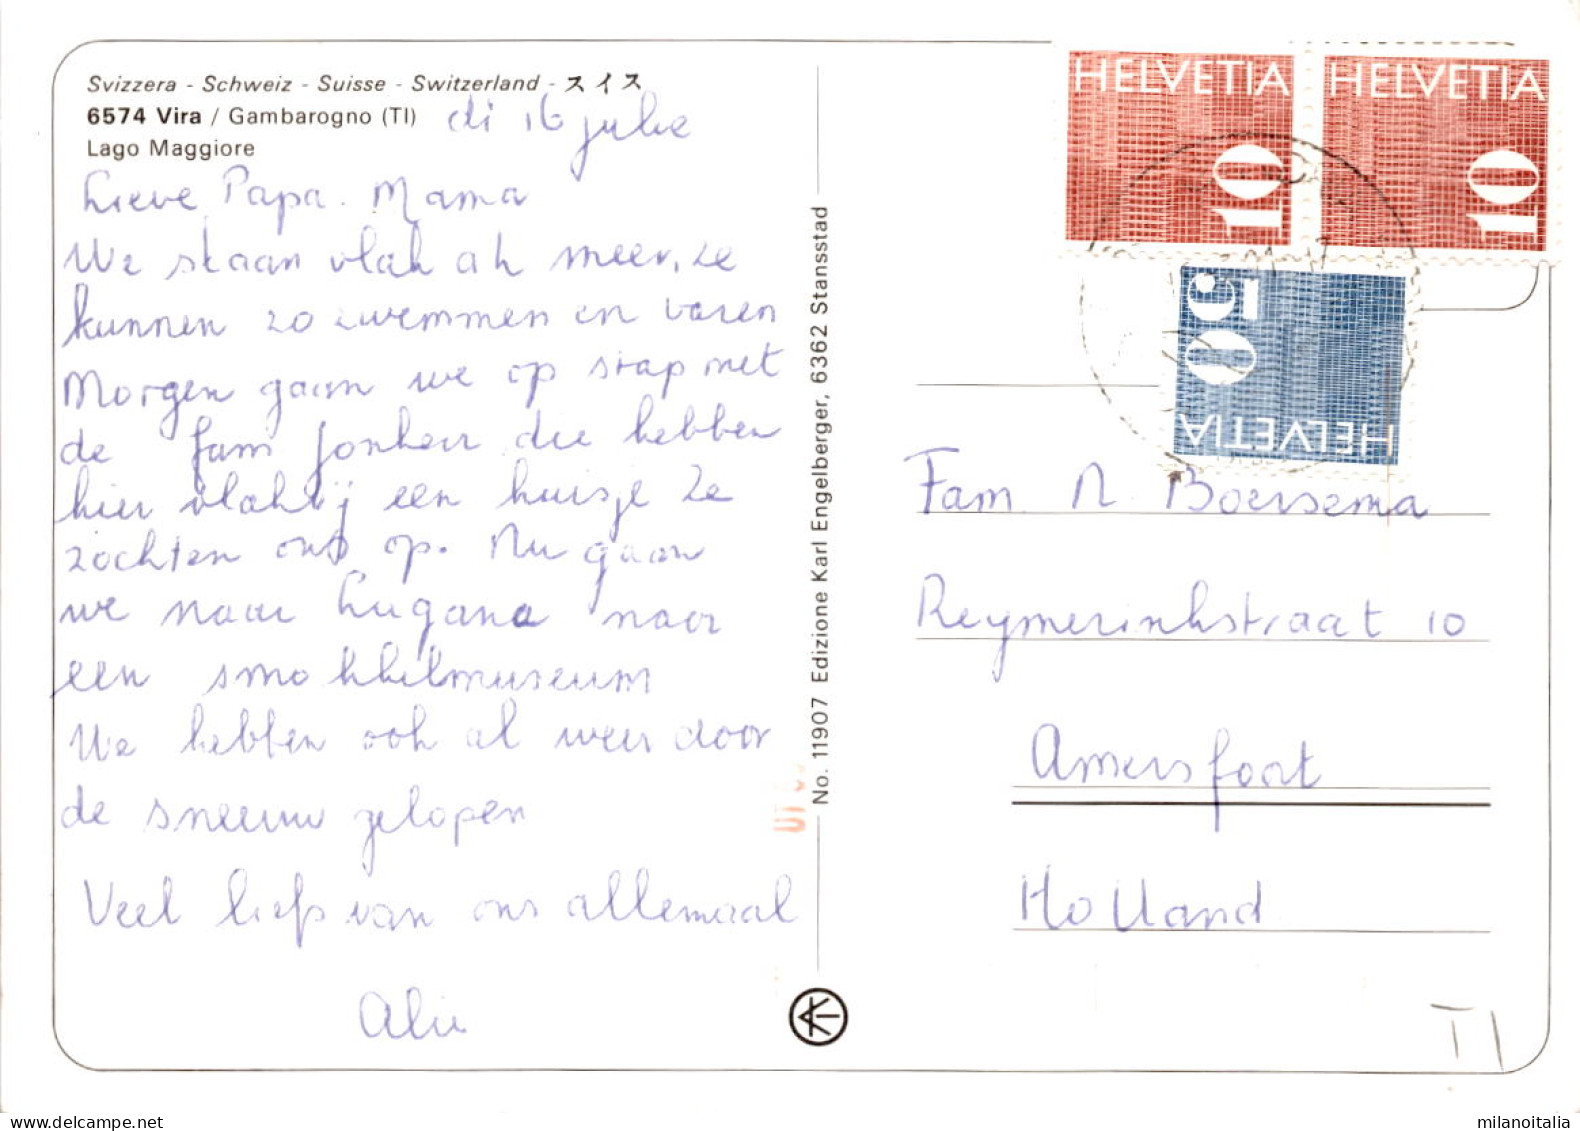 Svizzera - Schweiz - Suisse - Switzerland - スイス
6574 Vira / Gambarogno (TI)
Lago Maggiore
di 16 julie
Lieve Papa. Mama
We staan vlak ah meer, ze
kunnen zo zwemmen en varen
Morgen gaan we op stap met
de fam Jonker die hebben
hier vlakbij een huisje Ze
zochten ons op. Nu gaan
we naar Lugano naar
een smokkelmuseum
We hebben ook al weer door
de sneeuw gelopen
Veel liefs van ons allemaal
No. 11907 Edizione Karl Engelberger, 6362 Stansstad
HELVETIA
10
HELVETIA
10
HELVETIA
50
Fam N Boersema
Reymerinkstraat 10
Amersfoort
Holland
TI
milanoitalia